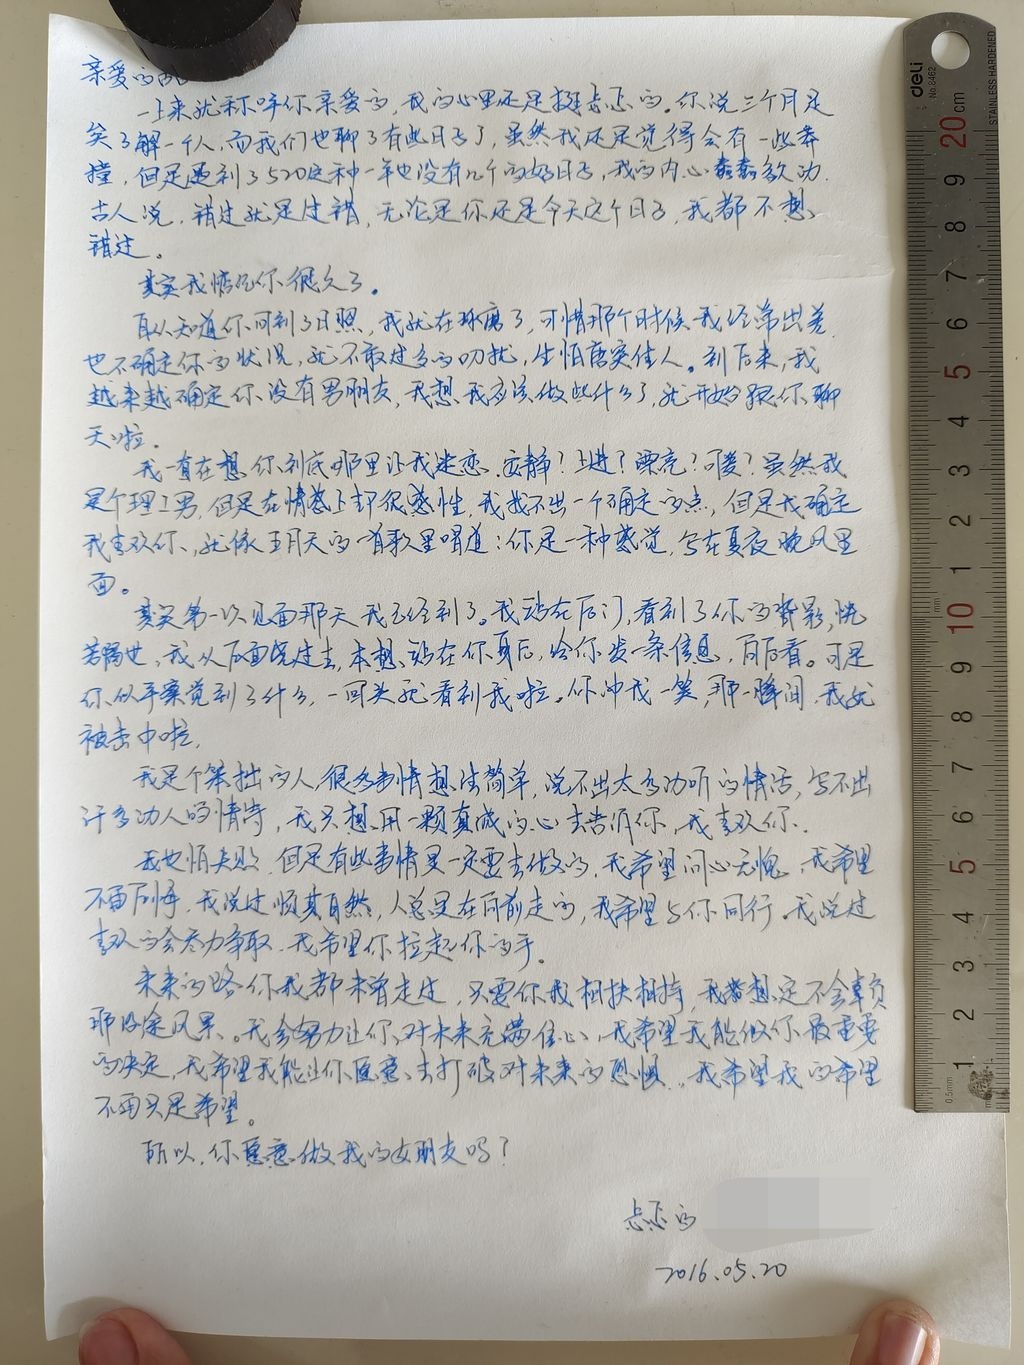 亲爱的
一上来就称呼你亲爱的，我的心里还是挺忐忑的。你说三个月足
矣了解一个人，而我们也聊了有些日子了，虽然我还是觉得会有一些莽
撞，但是遇到了520这种一年也没有几个的好日子，我的内心蠢蠢欲动.
古人说，错过就是过错，无论是你还是今天这个日子，我都不想
错过。
其实我惦记你很久了。
自从知道你回到了日照，我就在琢磨了，可惜那个时候我经常出差，
也不确定你的状况，就不敢过多的叨扰，生怕唐突佳人。到后来，我
越来越确定你没有男朋友，我想我应该做些什么了，就开始跟你聊
天啦.
我一直在想你到底哪里让我迷恋，安静？上进？漂亮？可爱？虽然我
是个理工男，但是在情感上却很感性，我找不出一个确定的点，但是我确定
我喜欢你、就像五月天的一首歌里唱道：你是一种感觉，写在夏夜晚风里
面。
其实第一次见面那天我已经到了。我站在后门，看到了你的背影，恍
若隔世，我从后面绕过去，本想站在你身后，给你发一条信息，向后看。可是
你似乎察觉到了什么，一回头就看到我啦。你冲我一笑，那一瞬间，我就
被击中啦.
我是个笨拙的人，很多事情想法简单，说不出太多动听的情话，写不出
许多动人的情诗，我只想用一颗真诚的心去告诉你，我喜欢你.
我也怕失败，但是有些事情是一定要去做的，我希望问心无愧，我希望
不留后悔，我说过顺其自然，人总是在向前走的，我希望与你同行。我说过
喜欢的会尽力争取，我希望你拉起你的手。
未来的路你我都未曾走过，只要你我相扶相持，我着想定不会辜负
那沿途风景。我会努力让你对未来充满信心，我希望我能做你最重要
的决定，我希望我能让你愿意去打破对未来的恐惧，我希望我的希望
不再只是希望。
所以，你愿意做我的女朋友吗？
忐忑的
2016.05.20
deli
No.8462
20cm
STAINLESS HARDENED
9
8
7
6
5
4
3
2
1
10
9
8
7
6
5
4
3
2
1
0.5mm
mm